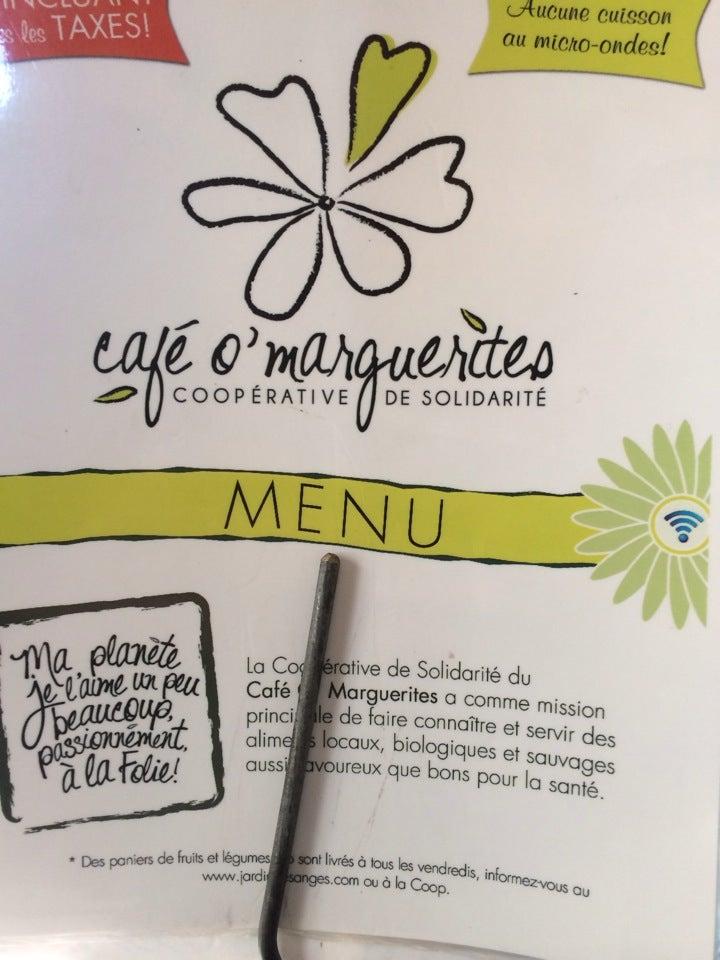 TAXES!
Aucune cuisson
au micro-ondes!
café o'marguerites
COOPÉRATIVE DE SOLIDARITÉ
MENU
Ma planète
je l'aime un peu
beaucoup,
passionnément,
à la Folie!
La Coopérative de Solidarité du
Café Marguerites a comme mission
principale de faire connaître et servir des
aliments locaux, biologiques et sauvages
aussi savoureux que bons pour la santé.
* Des paniers de fruits et légumes sont livrés à tous les vendredis, informez-vous au
ou à la Coop.